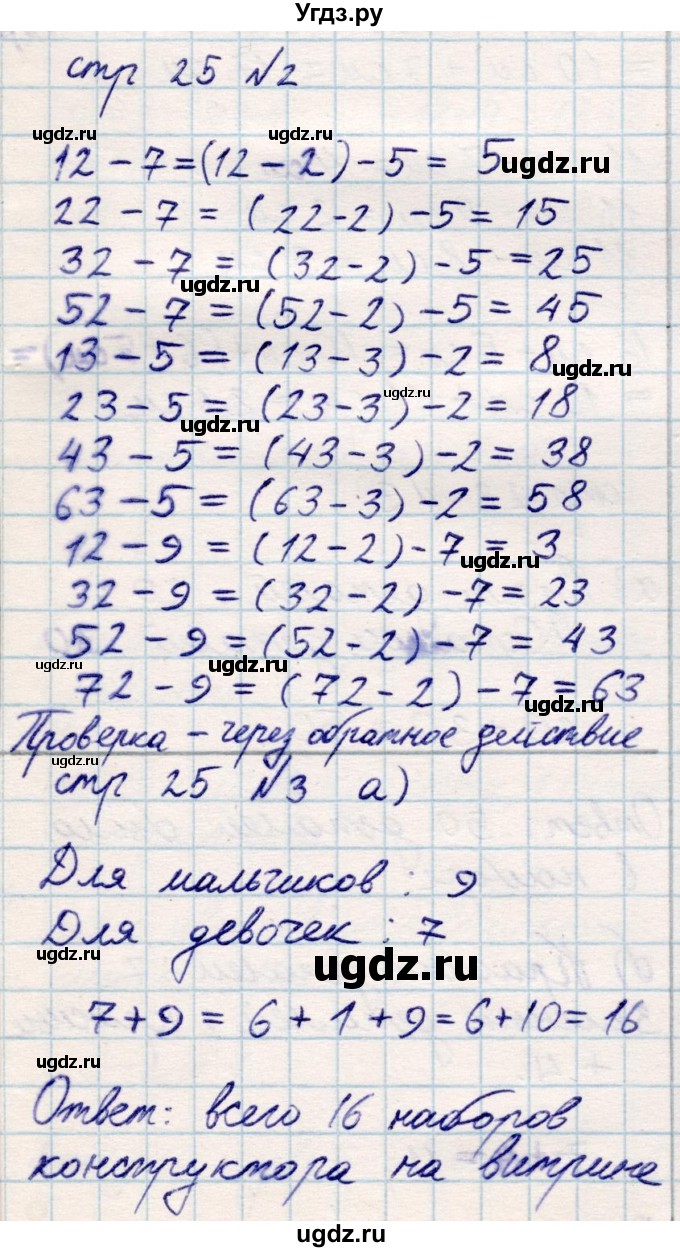 Угдз.ру
стр 25 №2
ugdz.ru ugdz.ru
12 - 7 = (12 - 2) - 5 = 5
ugdz.ru
22 - 7 = (22 - 2) - 5 = 15
32 - 7 = (32 - 2) - 5 = 25
ugdz.ru
52 - 7 = (52 - 2) - 5 = 45
ugdz.ru
13 - 5 = (13 - 3) - 2 = 8
ugdz.ru
23 - 5 = (23 - 3) - 2 = 18
ugdz.ru
ugdz.ru
43 - 5 = (43 - 3) - 2 = 38
63 - 5 = (63 - 3) - 2 = 58
ugdz.ru
ugdz.ru
12 - 9 = (12 - 2) - 7 = 3
ugdz.ru
32 - 9 = (32 - 2) - 7 = 23
52 - 9 = (52 - 2) - 7 = 43
ugdz.ru ugdz.ru
72 - 9 = (72 - 2) - 7 = 63
ugdz.ru
Проверка - через обратное действие
ugdz.ru
стр 25 №3 а)
ugdz.ru
Для мальчиков : 9
Для девочек : 7
ugdz.ru
ugdz.ru
7 + 9 = 6 + 1 + 9 = 6 + 10 = 16
ugdz.ru
Ответ: всего 16 наборов
конструктора на витрине
ugdz.ru
ugdz.ru